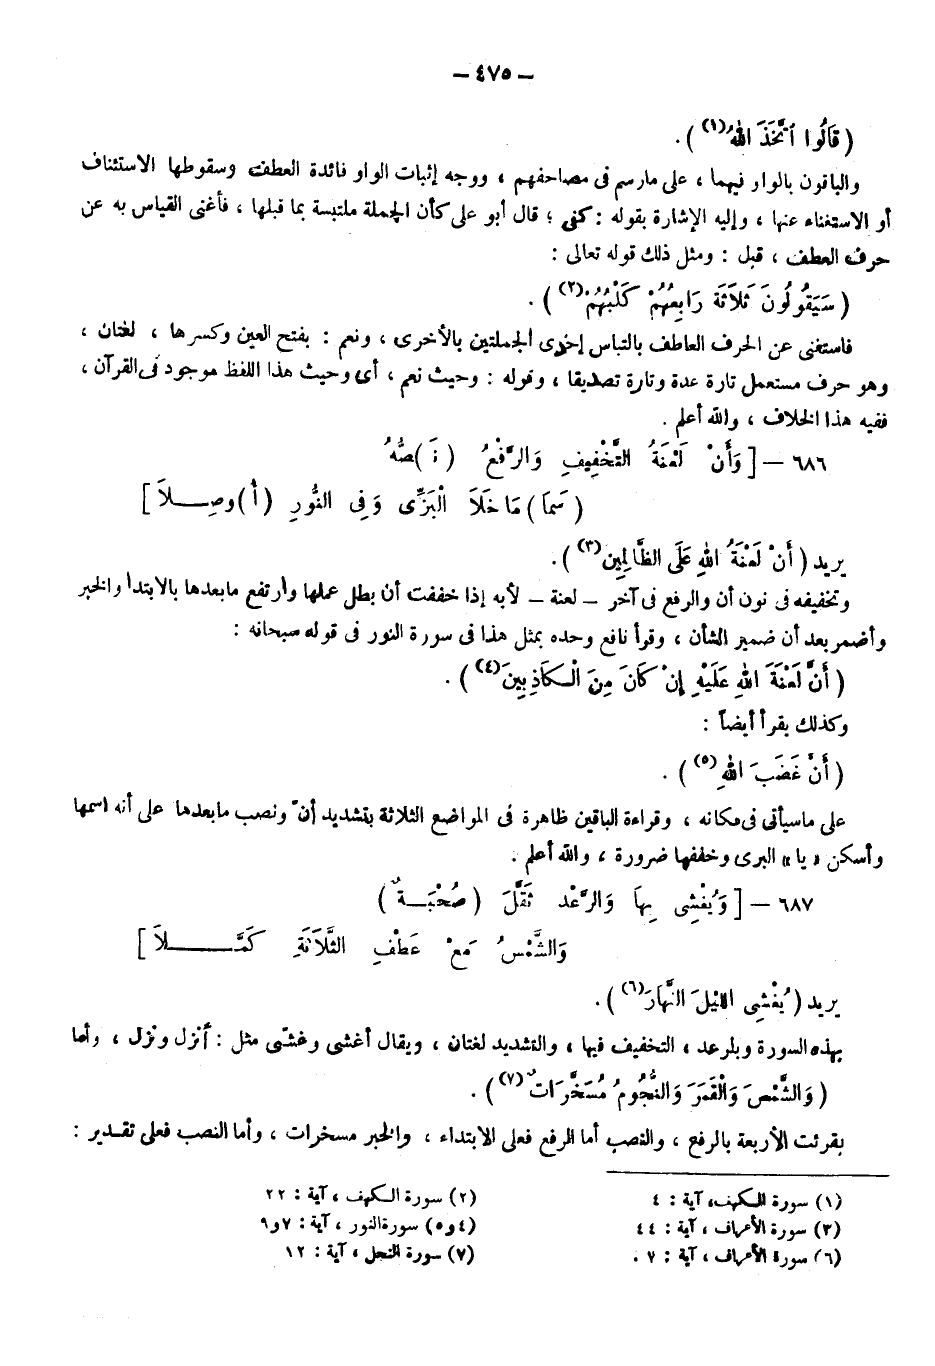 – ٤٧٥ –
( قَالُوا اتَّخَذَ اللهُ(١) ) .
والباقون بالوار فيهما ، على مارسم فى مصاحفهم ، ووجه إثبات الواو فائدة العطف وسقوطها الاستئناف
أو الاستغناء عنها ، وإليه الإشارة بقوله : كفى ؛ قال أبو على كأن الجملة ملتبسة بما قبلها ، فأغنى القياس به عن
حرف العطف ، قبل : ومثل ذلك قوله تعالى :
( سَيَقُولُونَ ثَلَاثَة رَابِعُهُمْ كَلْبُهُمْ(٢) ) .
فاستغنى عن الحرف العاطف بالتباس إحدى الجملتين بالأخرى ، ونعم : بفتح العين وكسرها ، لغتان ،
وهو حرف مستعمل تارة عدة وتارة تصديقا ، وقوله : وحيث نعم ، أى وحيث هذا اللفظ موجود فى القرآن ،
ففيه هذا الخلاف ، والله أعلم .
٦٨٦ – [ وَأَنْ لَعْنَةُ التَّخْفِيفِ وَالرَّفْعُ ( نَ ) صُّهُ
( سَمَا ) مَا خَلَا الْبَزِّى وَفِى النُّورِ ( أُ ) وصِلَا ]
يريد ( أَنْ لَعْنَةُ اللهِ عَلَى الظَّالِمِين(٣) ) .
وتخفيفه فى نون أن والرفع فى آخر – لعنة – لأبه إذا خففت أن بطل عملها وارتفع مابعدها بالابتدا والخبر
وأضمر بعد أن ضمير الشأن ، وقرأ نافع وحده بمثل هذا فى سورة النور فى قوله سبحانه :
( أَنَّ لَعْنَةَ اللهِ عَلَيْهِ إِنْ كَانَ مِنَ الْكَاذِبِينَ(٤) ) .
وكذلك يقرأ أيضاً :
( أَنَّ غَضَبَ اللهِ(٥) ) .
على ماسيأتى فى مكانه ، وقراءة الباقين ظاهرة فى المواضع الثلاثة بتشديد أنّ ونصب مابعدها على أنه اسمها
وأسكن « يا » البرى وخففها ضرورة ، والله أعلم .
٦٨٧ – [ وَيُغْشِى بِهَا وَالرَّعْد ثَقَّلَ ( صُحْبَةٌ )
وَالشَّمْسُ مَعْ عَطْفِ الثَّلَاثَةِ كَمَّلَا ]
يريد ( يُغْشِى الليْلَ النَّهَارَ(٦) ) .
بهذه السورة وبلرعد ، التخفيف فيها ، والتشديد لغتان ، ويقال أغشى وغشّى مثل : أنزل ونزل ، وأما
( وَالشَّمْسَ وَالْقَمَرَ وَالنُّجُومُ مُسَخَّرَاتٌ(٧) ) .
بقرئت الأربعة بالرفع ، والنصب أما الرفع فعلى الابتداء ، والخبر مسخرات ، وأما النصب فعلى تقدير :
(١) سورة الكهف، آية : ٤
(٢) سورة الكهف ، آية : ٢٢
(٣) سورة الأعراف ، آية : ٤٤
(٤ و٥) سورة النور ، آية : ٧ و٩
(٦) سورة الأعراف ، آية : ٧ .
(٧) سورة النحل ، آية : ١٢